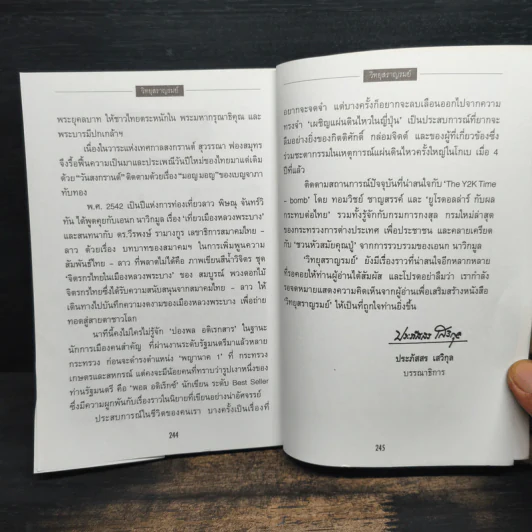 วิทยุสราญรมย์
พระยุคลบาท ให้ชาวไทยตระหนักใน พระมหากรุณาธิคุณ และ
พระบารมีปกเกล้าฯ
เนื่องในวาระแห่งเทศกาลสงกรานต์ สุวรรณา ฟองสมุทร
จึงรื้อฟื้นความเป็นมาและประเพณีวันปีใหม่ของไทยมาแต่เดิม
ด้วย "วันสงกรานต์" ติดตามด้วยเรื่อง "มอญ มอญ" ของเบญจาภา
ทับทอง
พ.ศ. 2542 เป็นปีแห่งการท่องเที่ยวลาว พิษณุ จันทร์วิ
ทัน ได้พูดคุยกับเอนก นาวิกมูล เรื่อง 'เที่ยวเมืองหลวงพระบาง'
และสนทนากับ ดร.วีรพงษ์ รามางกูร เลขาธิการสมาคมไทย –
ลาว ด้วยเรื่อง บทบาทของสมาคมฯ ในการเพิ่มพูนความ
สัมพันธ์ไทย – ลาว ที่พลาดไม่ได้คือ ภาพเขียนสีน้ำวิจิตร ชุด
'จิตรกรไทยในเมืองหลวงพระบาง' ของ สมบูรณ์ พวงดอกไม้
จิตรกรไทยซึ่งได้รับความสนับสนุนจากสมาคมไทย – ลาว ให้
เดินทางไปบันทึกความงดงามของเมืองหลวงพระบาง เพื่อถ่าย
ทอดสู่สายตาชาวโลก
นาทีนี้คงไม่ใครไม่รู้จัก 'ปองพล อดิเรกสาร' ในฐานะ
นักการเมืองคนสำคัญ ที่ผ่านงานระดับรัฐมนตรีมาแล้วหลาย
กระทรวง ก่อนจะดำรงตำแหน่ง 'พญานาค 1' ที่ กระทรวง
เกษตรและสหกรณ์ แต่คงจะมีน้อยคนที่ทราบว่ารูปเงาหนึ่งของ
ท่านรัฐมนตรี คือ 'พอล อดิเร็กซ์' นักเขียน ระดับ Best Seller
ซึ่งมีความผูกพันกับเรื่องราวในนิยายที่เขียนอย่างน่าอัศจรรย์
ประสบการณ์ในชีวิตของคนเรา บางครั้งก็เป็นเรื่องที่
244
วิทยุสราญรมย์
อยากจะจดจำ แต่บางครั้งก็อยากจะลบเลือนออกไปจากความ
ทรงจำ 'เผชิญแผ่นดินไหวในญี่ปุ่น' เป็นประสบการณ์ที่ยากจะ
ลืมอย่างยิ่งของกิตติศักดิ์ กล่อมจิตต์ และของผู้ที่เกี่ยวข้องซึ่ง
ร่วมชะตากรรมในเหตุการณ์แผ่นดินไหวครั้งใหญ่ในโกเบ เมื่อ 4
ปีที่แล้ว
ติดตามสถานการณ์ปัจจุบันที่น่าสนใจกับ 'The Y2K Time
- bomb' โดย ทอมวิชย์ ชาญสรรค์ และ 'ยูโรดอลล่าร์ กับผล
กระทบต่อไทย' รวมทั้งรู้จักกับกรมการกงสุล กรมใหม่ล่าสุด
ของกระทรวงการต่างประเทศ เพื่อประชาชน และคลายเครียด
กับ 'ชวนหัวสมัยคุณปู่' จากการรวบรวมของเอนก นาวิกมูล
'วิทยุสราญรมย์' ยังมีเรื่องราวที่น่าสนใจอีกหลากหลาย
ที่รอคอยให้ท่านผู้อ่านได้สัมผัส และโปรดอย่าลืมว่า เรากำลัง
รอจดหมายแสดงความคิดเห็นจากผู้อ่านเพื่อเสริมสร้างหนังสือ
'วิทยุสราญรมย์' ให้เป็นที่ถูกใจท่านยิ่งขึ้น
ประภัสสร เสวิกุล
ประภัสสร เสวิกุล
บรรณาธิการ
245